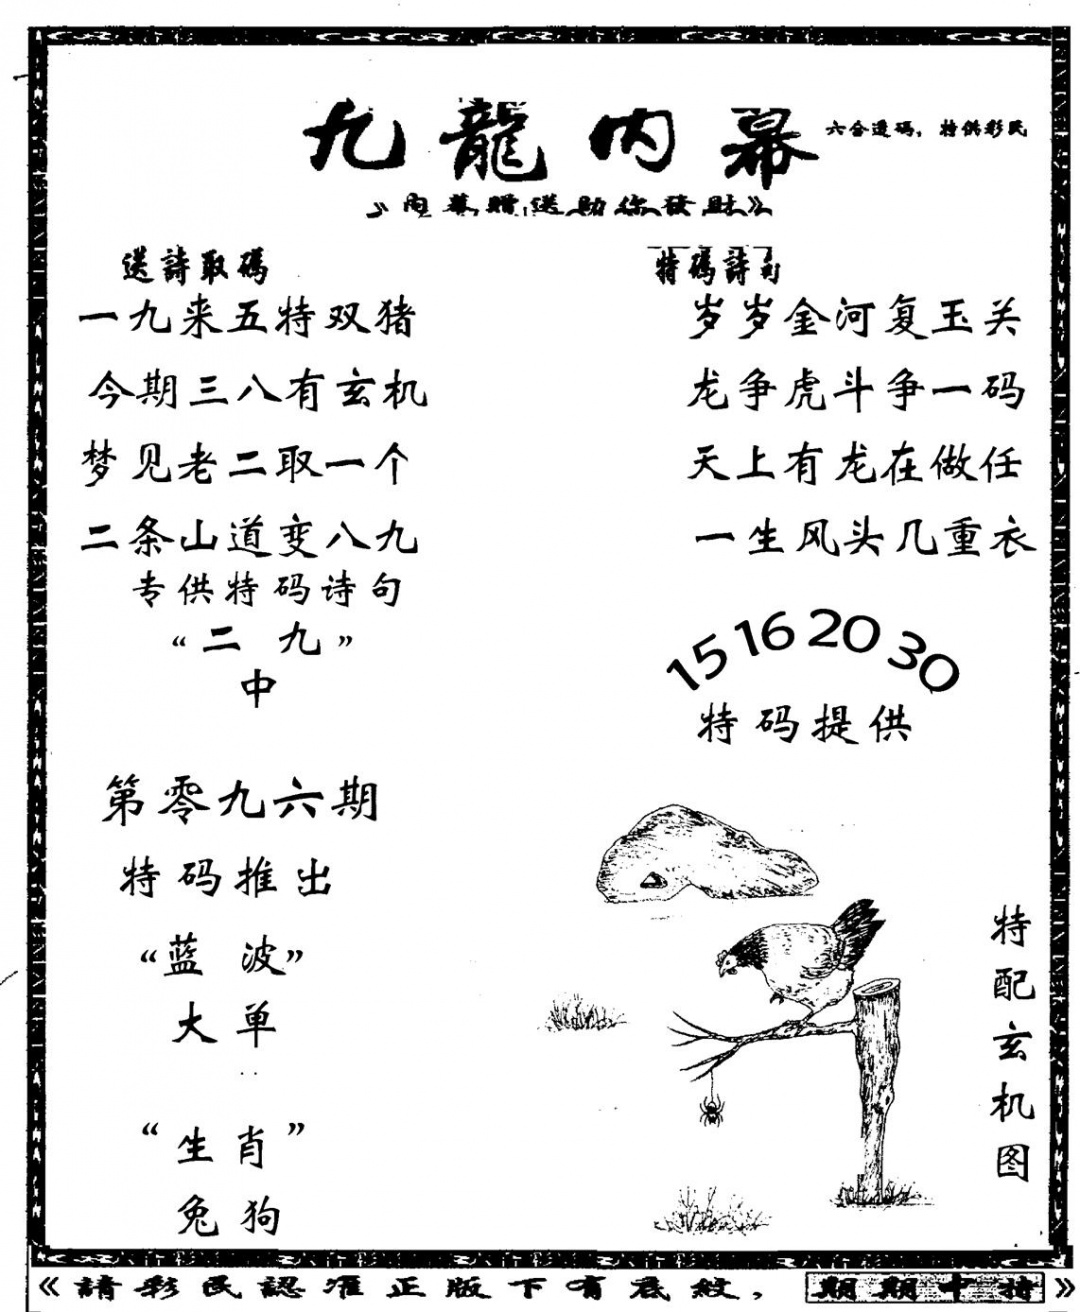 九龍内幕
六合透码，特供彩民
》内幕贈送助你發財》
送詩取碼
一九来五特双猪
今期三八有玄机
梦见老二取一个
二条山道变八九
专供特码诗句
“二 九”
中
第零九六期
特码推出
“蓝 波”
大单
“生肖”
兔狗
特碼詩句
岁岁金河复玉关
龙争虎斗争一码
天上有龙在做任
一生风头几重衣
15 16 20 30
特码提供
特配玄机图
《請彩民認准正版下有底紋，期期中特》